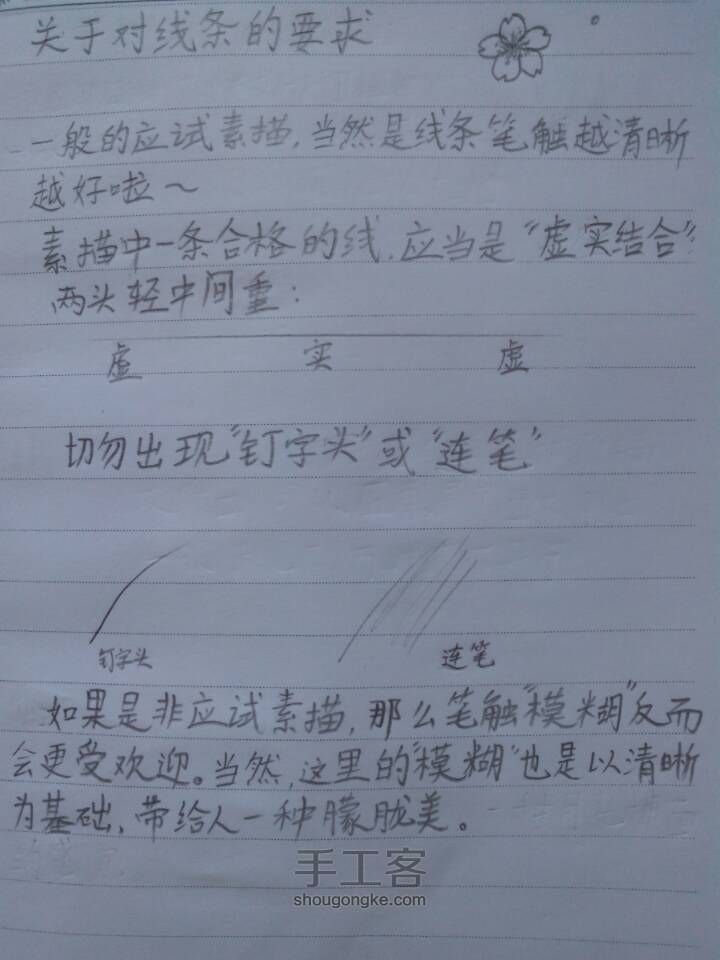 关于对线条的要求
一般的应试素描,当然是线条笔触越清晰
越好啦~
素描中一条合格的线,应当是"虚实结合"
两头轻中间重:
虚 实 虚
切勿出现"钉字头"或"连笔"
钉字头 连笔
如果是非应试素描,那么笔触"模糊"反而
会更受欢迎。当然,这里的"模糊"也是以清晰
为基础,带给人一种朦胧美。
手工客
shougongke.com